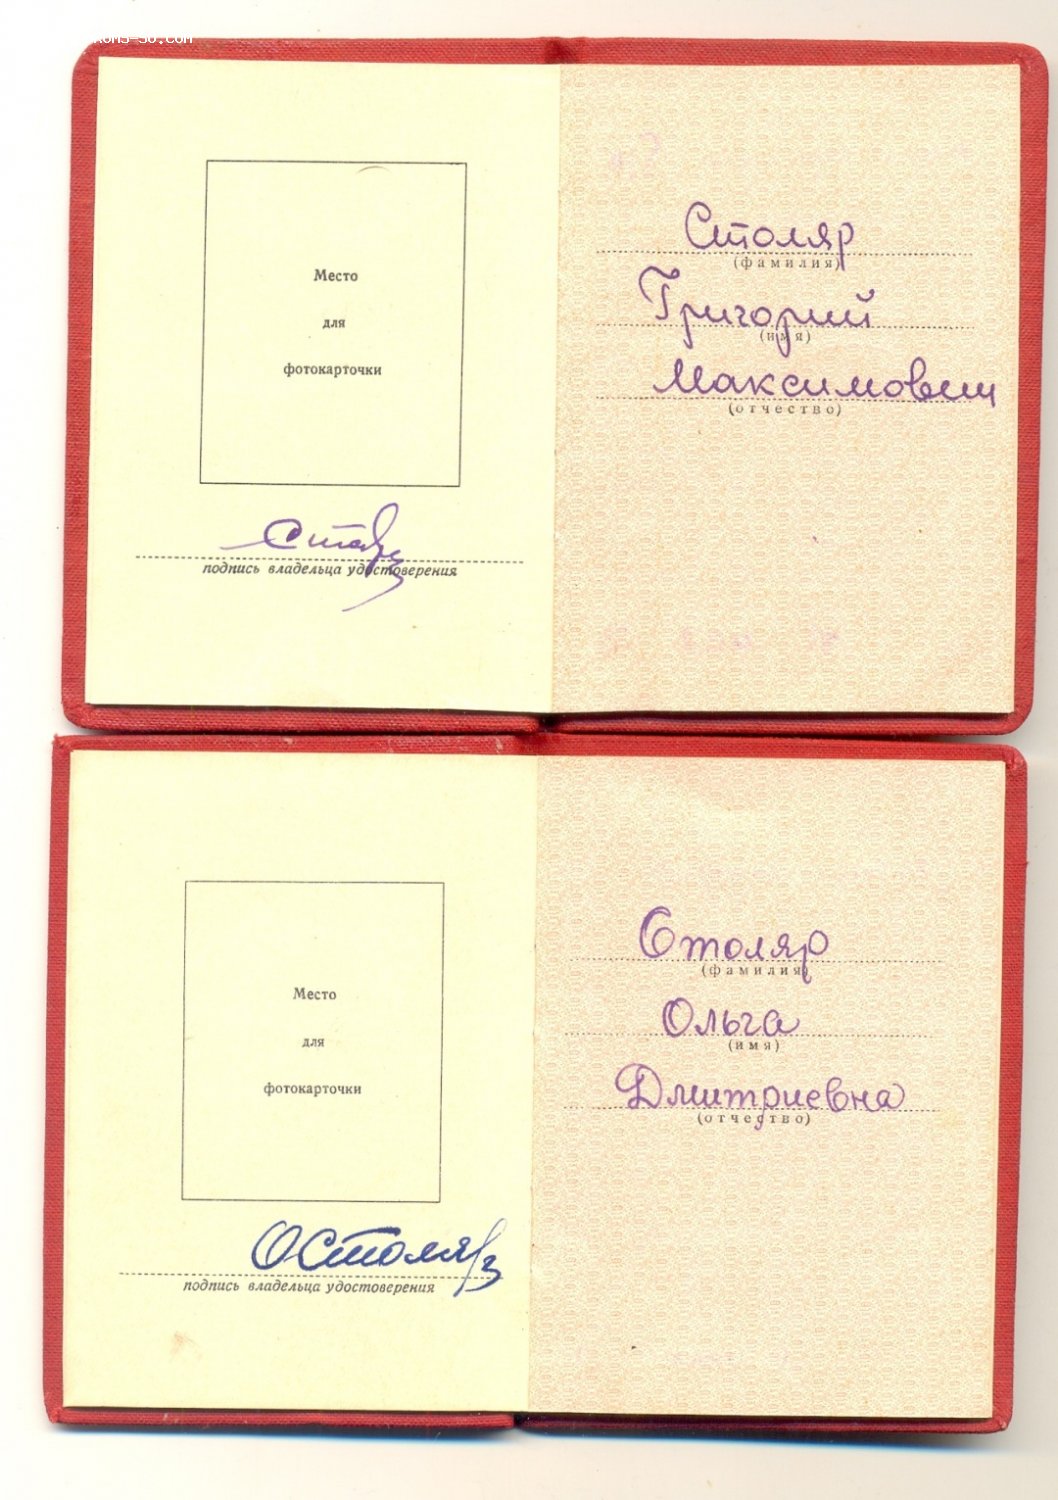 Место
для
фотокарточки
подпись владельца удостоверения
Столяр
(фамилия)
Григорий
(имя)
Максимович
(отчество)
Место
для
фотокарточки
ОСтоляр
подпись владельца удостоверения
Столяр
(фамилия)
Ольга
(имя)
Дмитриевна
(отчество)